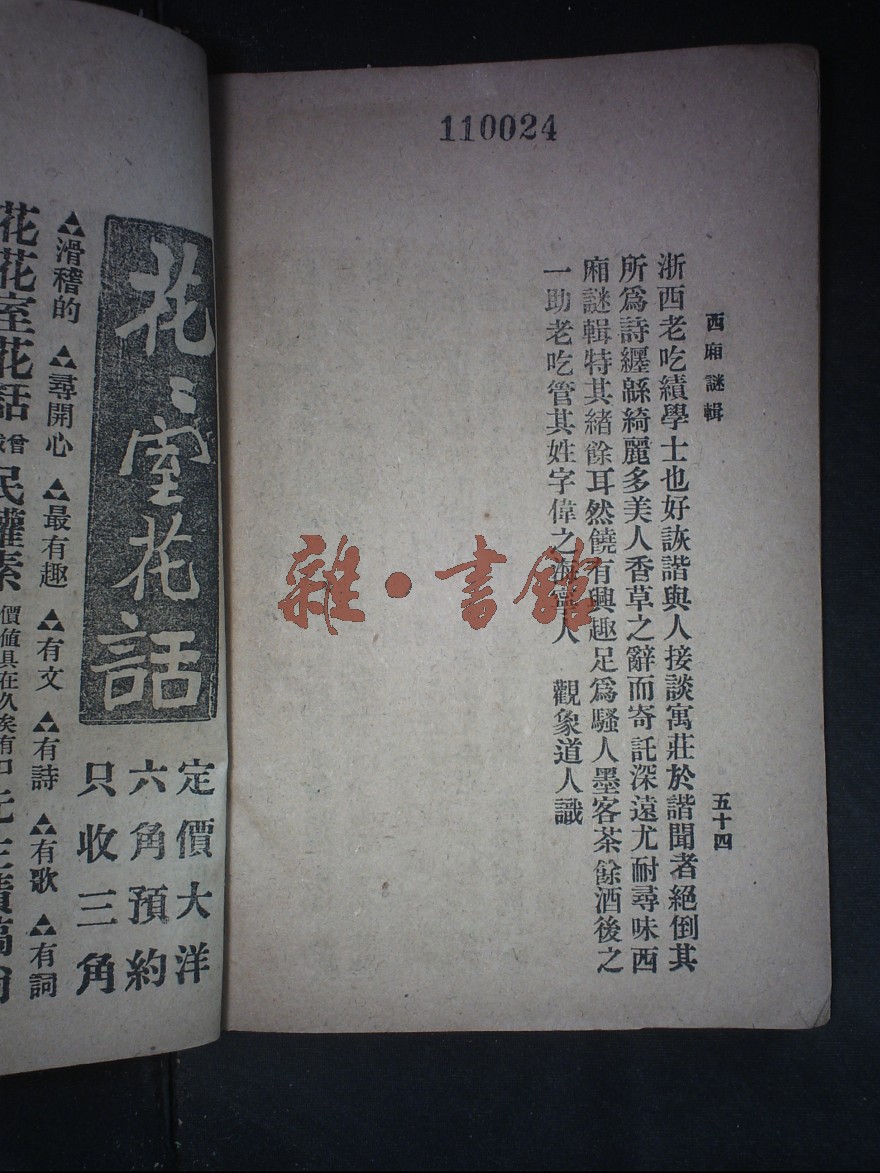 110024
西廂謎輯
五十四
浙西老吃績學士也好詼諧與人接談寓莊於諧聞者絕倒其
所爲詩纏緜綺麗多美人香草之辭而寄託深遠尤耐尋味西
廂謎輯特其緒餘耳然饒有興趣足爲騷人墨客茶餘酒後之
一助老吃管其姓字偉之海寧人 觀象道人識
雜·書館
定價大洋
六角預約
只收三角
花〻室花話
▲滑稽的 ▲尋開心 ▲最有趣 ▲有文 ▲有詩 ▲有歌 ▲有詞
花花室花話 民權素
價值具在久矣有口